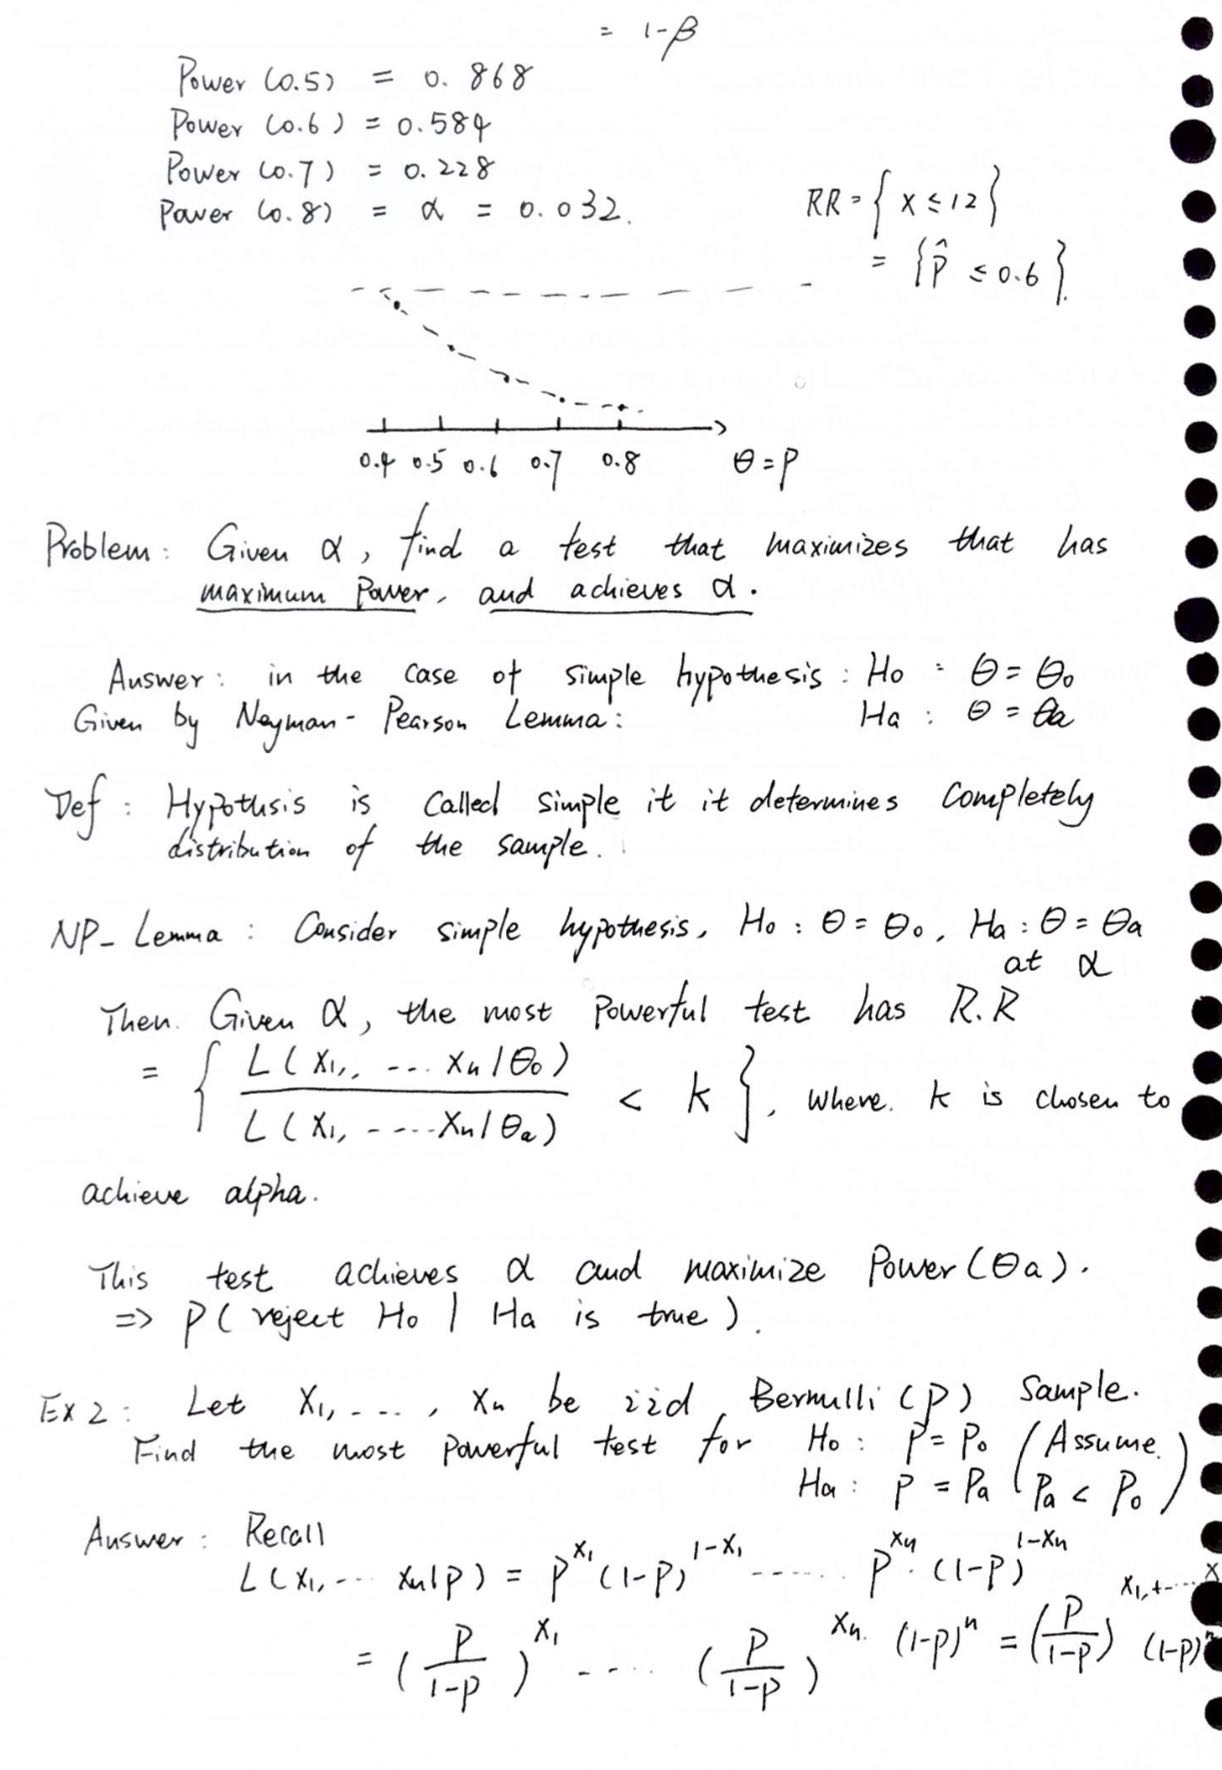 = 1-β
Power (0.5) = 0.868
Power (0.6) = 0.584
Power (0.7) = 0.228
Power (0.8) = α = 0.032.
RR = { X ≤ 12 }
= { p̂ ≤ 0.6 }.
0.4 0.5 0.6 0.7 0.8 θ = p
Problem: Given α, find a test that maximizes that has
maximum Power, and achieves α.
Answer: in the case of simple hypothesis: Ho : θ = θo
Given by Neyman-Pearson Lemma: Ha : θ = θa
Def: Hypothsis is called simple it it determines completely
distribution of the sample.
NP- Lemma: Consider simple hypothesis, Ho : θ = θo, Ha : θ = θa
at α
Then. Given α, the most powerful test has R.R
= { L(X1,, ... Xn | θo) / L(X1, ....Xn | θa) < k }, where. k is chosen to
achieve alpha.
This test achieves α and maximize Power(θa).
=> P( reject Ho | Ha is true ).
EX 2: Let X1, ..., Xn be iid Bernulli (p) sample.
Find the most powerful test for Ho: P = Po (Assume.
Ha: P = Pa Pa < Po)
Answer: Recall
L(X1, ... Xn|p) = p^X1 (1-p)^1-X1 ...... p^Xn · (1-p)^1-Xn
= (p/1-p)^X1 ..... (p/1-p)^Xn. (1-p)^n = (p/1-p)^X1,+...X (1-p)^n